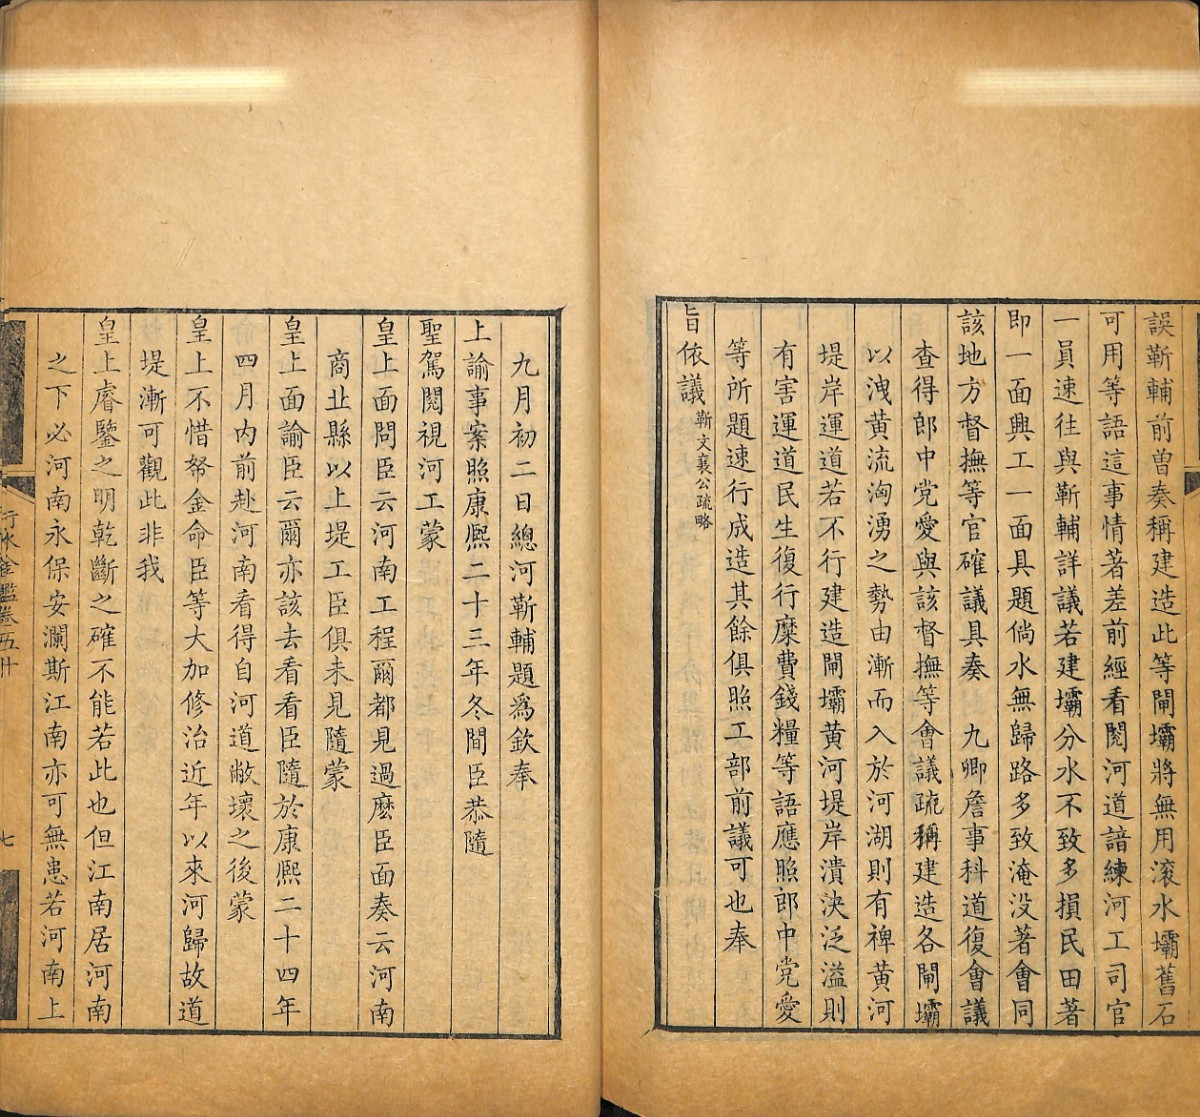 誤靳輔前曾奏稱建造此等閘壩將無用滾水壩舊石
可用等語這事情著差前經看閱河道諳練河工司官
一員速往與靳輔詳議若建壩分水不致多損民田著
即一面興工一面具題倘水無歸路多致淹没著會同
該地方督撫等官確議具奏 九卿詹事科道復會議
查得郎中党愛與該督撫等會議疏稱建造各閘壩
以洩黄流洶湧之勢由漸而入於河湖則有裨黄河
堤岸運道若不行建造閘壩黄河堤岸潰決泛溢則
有害運道民生復行糜費錢糧等語應照郎中党愛
等所題速行成造其餘俱照工部前議可也奉
旨依議靳文襄公疏略
九月初二日總河靳輔題為欽奉
上諭事案照康熈二十三年冬間臣恭隨
聖駕閱視河工蒙
皇上面問臣云河南工程爾都見過麽臣面奏云河南
商北縣以上堤工臣俱未見隨蒙
皇上面諭臣云爾亦該去看看臣隨於康熈二十四年
四月内前赴河南看得自河道敝壞之後蒙
皇上不惜帑金命臣等大加修治近年以來河歸故道
堤漸可觀此非我
皇上睿鑒之明乾斷之確不能若此也但江南居河南
之下必河南永保安瀾斯江南亦可無患若河南上
行水金鑑卷五十
七